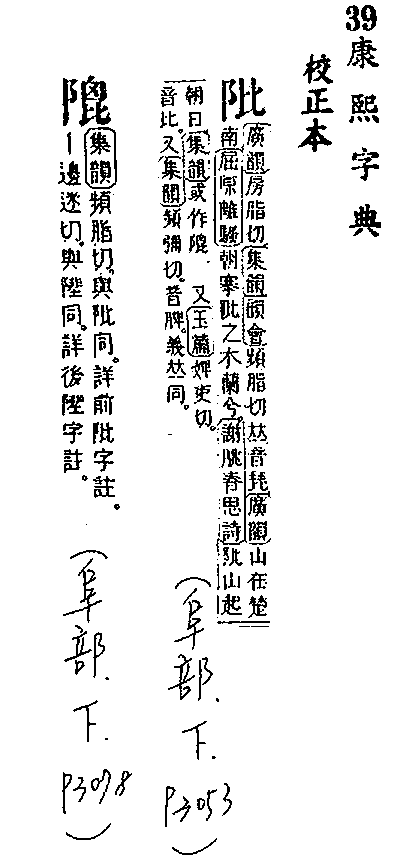 39康熙字典
校正本
阰
廣韻房脂切集韻韻會頻脂切𠀤音毗廣韻山在楚
南屈原離騷朝搴阰之木蘭兮。謝朓春思詩阰山起
朝日集韻或作𨺙 又玉篇婢吏切。
音比。又集韻頻彌切。音脾。義𠀤同。
(阜部.下.P3053)
集韻頻脂切。與阰同。詳前阰字註。
一邊迷切。與陛同。詳後陛字註。
(阜部.下.P3098)